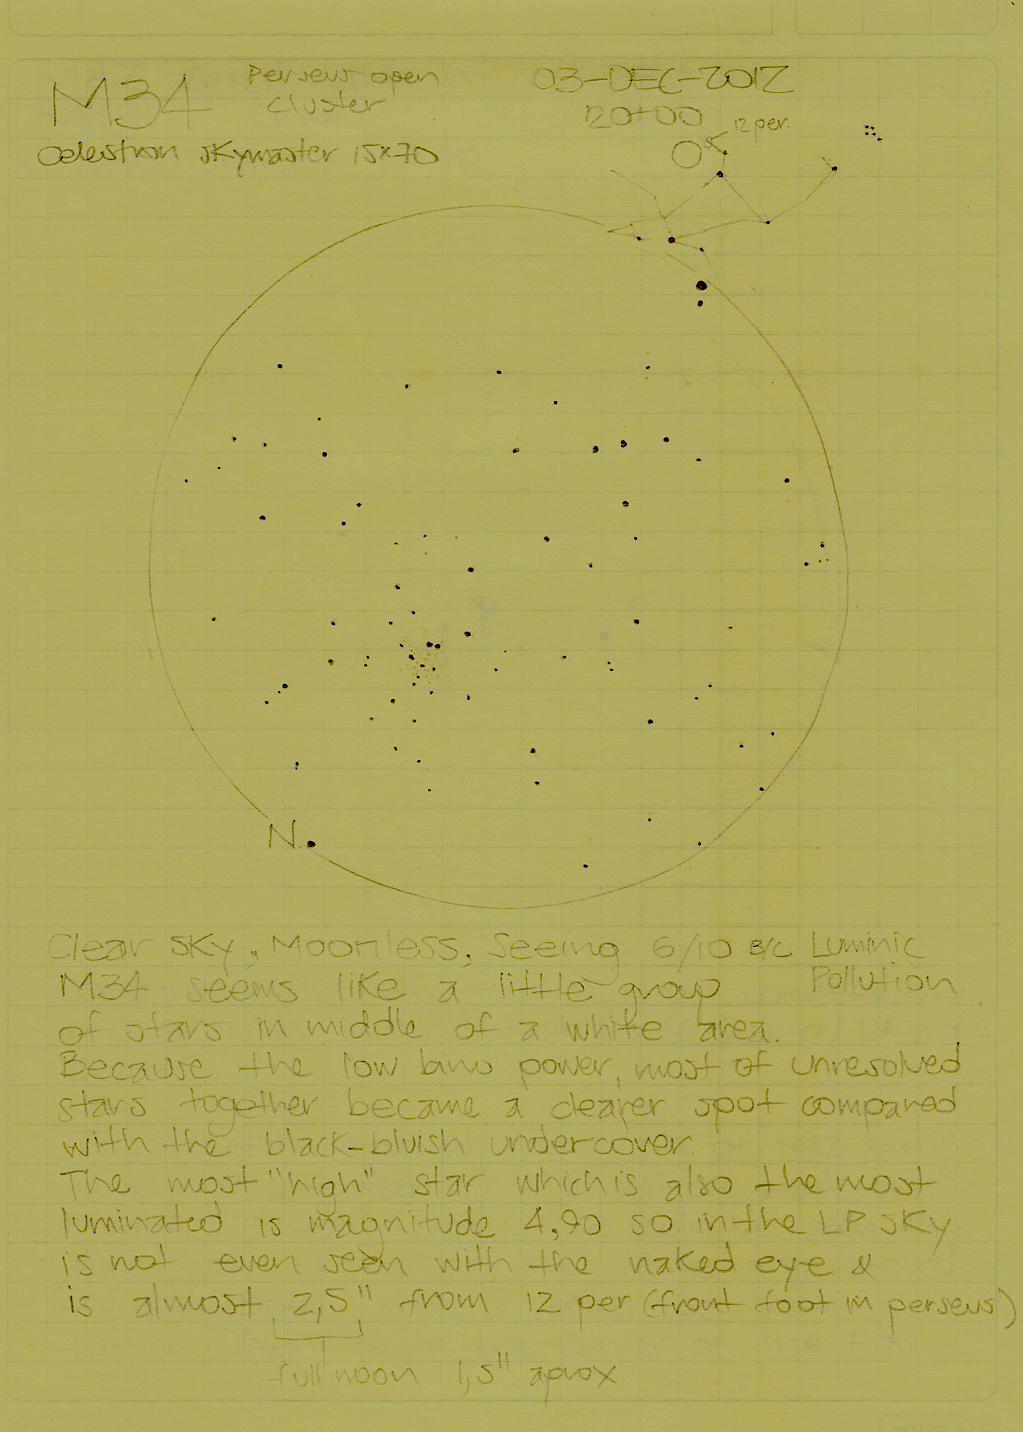 M34
Perseus open
cluster
03-DEC-2012
20+00
12 per.
Celestron skymaster 15x70
N
Clear sky, Moonless, Seeing 6/10 B/C Luminic
Pollution
M34 seems like a little group
of stars in middle of a white area.
Because the low bino power, most of unresolved
stars together became a clearer spot compared
with the black-bluish undercover.
The most "high" star which is also the most
luminated is magnitude 4,90 so in the LP sky
is not even seen with the naked eye &
is almost 2,5" from 12 per (front foot in perseus)
full moon 1,5" aprox